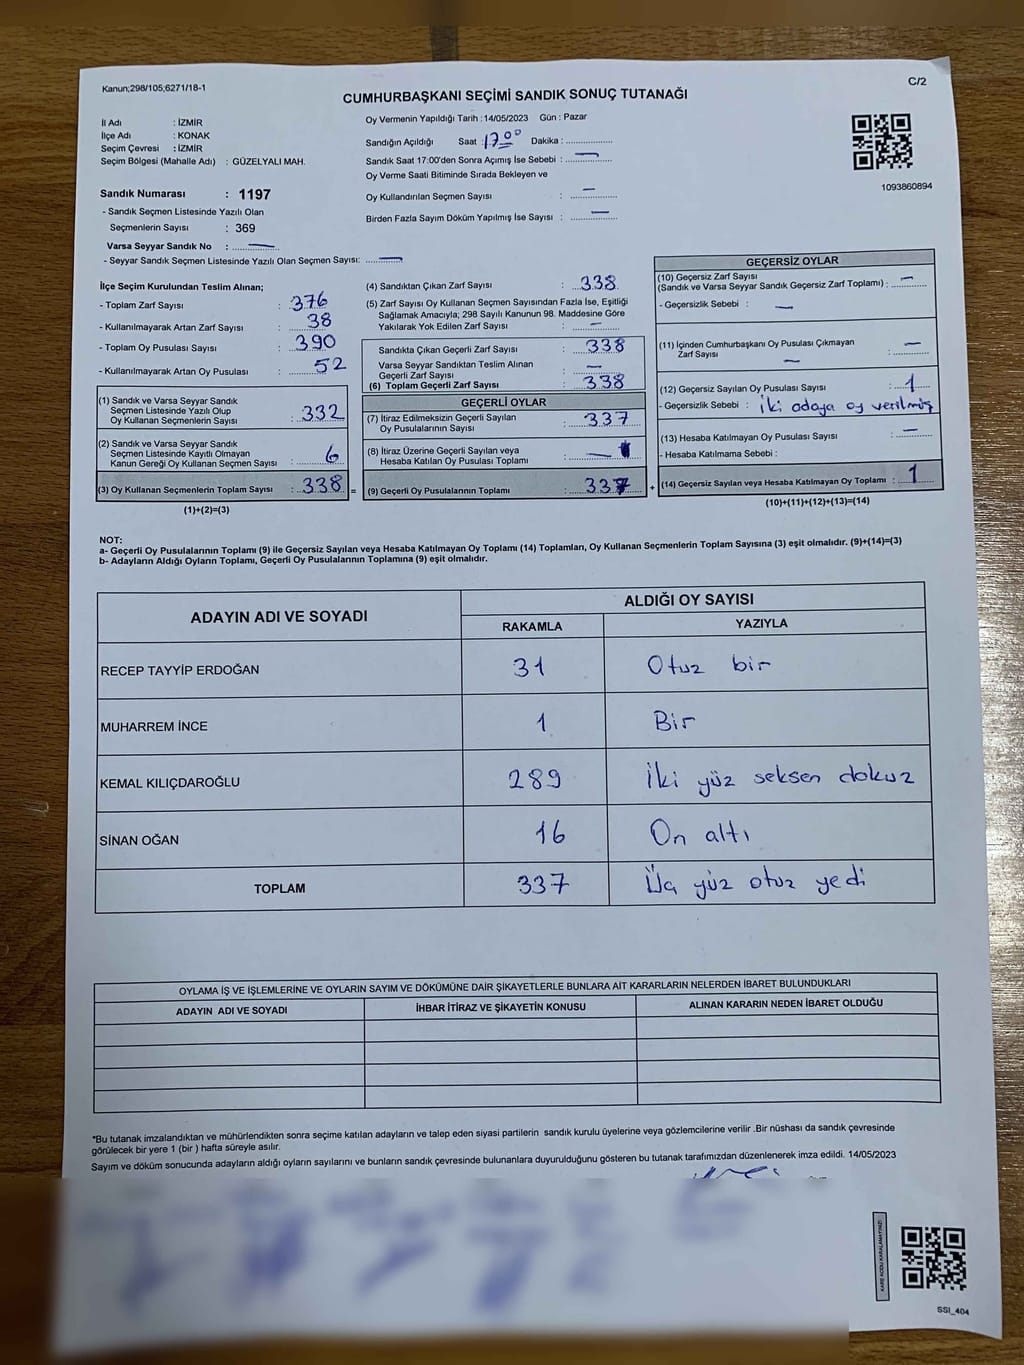 Kanun;298/105;6271/18-1
C/2
CUMHURBAŞKANI SEÇİMİ SANDIK SONUÇ TUTANAĞI
İl Adı : İZMİR
İlçe Adı : KONAK
Seçim Çevresi : İZMİR
Seçim Bölgesi (Mahalle Adı) : GÜZELYALI MAH.
Sandık Numarası : 1197
- Sandık Seçmen Listesinde Yazılı Olan
Seçmenlerin Sayısı : 369
Varsa Seyyar Sandık No : —
- Seyyar Sandık Seçmen Listesinde Yazılı Olan Seçmen Sayısı: —
Oy Vermenin Yapıldığı Tarih :14/05/2023 Gün : Pazar
Sandığın Açıldığı Saat : 17.00 Dakika :
Sandık Saat 17:00'den Sonra Açımış İse Sebebi : —
Oy Verme Saati Bitiminde Sırada Bekleyen ve
Oy Kullandırılan Seçmen Sayısı : —
Birden Fazla Sayım Döküm Yapılmış İse Sayısı : —
1093860894
İlçe Seçim Kurulundan Teslim Alınan;
- Toplam Zarf Sayısı : 376
- Kullanılmayarak Artan Zarf Sayısı : 38
- Toplam Oy Pusulası Sayısı : 390
- Kullanılmayarak Artan Oy Pusulası : 52
(1) Sandık ve Varsa Seyyar Sandık
Seçmen Listesinde Yazılı Olup
Oy Kullanan Seçmenlerin Sayısı : 332
(2) Sandık ve Varsa Seyyar Sandık
Seçmen Listesinde Kayıtlı Olmayan
Kanun Gereği Oy Kullanan Seçmen Sayısı : 6
(3) Oy Kullanan Seçmenlerin Toplam Sayısı : 338 =
(1)+(2)=(3)
(4) Sandıktan Çıkan Zarf Sayısı : 338
(5) Zarf Sayısı Oy Kullanan Seçmen Sayısından Fazla İse, Eşitliği
Sağlamak Amacıyla; 298 Sayılı Kanunun 98. Maddesine Göre
Yakılarak Yok Edilen Zarf Sayısı : —
Sandıkta Çıkan Geçerli Zarf Sayısı : 338
Varsa Seyyar Sandıktan Teslim Alınan
Geçerli Zarf Sayısı : —
(6) Toplam Geçerli Zarf Sayısı : 338
GEÇERLİ OYLAR
(7) İtiraz Edilmeksizin Geçerli Sayılan
Oy Pusulalarının Sayısı : 337
(8) İtiraz Üzerine Geçerli Sayılan veya
Hesaba Katılan Oy Pusulası Toplamı : —
(9) Geçerli Oy Pusulalarının Toplamı : 337 +
GEÇERSİZ OYLAR
(10) Geçersiz Zarf Sayısı
(Sandık ve Varsa Seyyar Sandık Geçersiz Zarf Toplamı) : —
- Geçersizlik Sebebi : —
(11) İçinden Cumhurbaşkanı Oy Pusulası Çıkmayan
Zarf Sayısı : —
—
(12) Geçersiz Sayılan Oy Pusulası Sayısı : 1
- Geçersizlik Sebebi : İki adaya oy verilmiş
(13) Hesaba Katılmayan Oy Pusulası Sayısı : —
- Hesaba Katılmama Sebebi :
(14) Geçersiz Sayılan veya Hesaba Katılmayan Oy Toplamı : 1
(10)+(11)+(12)+(13)=(14)
NOT:
a- Geçerli Oy Pusulalarının Toplamı (9) ile Geçersiz Sayılan veya Hesaba Katılmayan Oy Toplamı (14) Toplamları, Oy Kullanan Seçmenlerin Toplam Sayısına (3) eşit olmalıdır. (9)+(14)=(3)
b- Adayların Aldığı Oyların Toplamı, Geçerli Oy Pusulalarının Toplamına (9) eşit olmalıdır.
ADAYIN ADI VE SOYADI ALDIĞI OY SAYISI
RAKAMLA YAZIYLA
RECEP TAYYİP ERDOĞAN 31 Otuz bir
MUHARREM İNCE 1 Bir
KEMAL KILIÇDAROĞLU 289 İki yüz seksen dokuz
SİNAN OĞAN 16 On altı
TOPLAM 337 Üç yüz otuz yedi
OYLAMA İŞ VE İŞLEMLERİNE VE OYLARIN SAYIM VE DÖKÜMÜNE DAİR ŞİKAYETLERLE BUNLARA AİT KARARLARIN NELERDEN İBARET BULUNDUKLARI
ADAYIN ADI VE SOYADI İHBAR İTİRAZ VE ŞİKAYETİN KONUSU ALINAN KARARIN NEDEN İBARET OLDUĞU
*Bu tutanak imzalandıktan ve mühürlendikten sonra seçime katılan adayların ve talep eden siyasi partilerin sandık kurulu üyelerine veya gözlemcilerine verilir .Bir nüshası da sandık çevresinde
görülecek bir yere 1 (bir ) hafta süreyle asılır.
Sayım ve döküm sonucunda adayların aldığı oyların sayılarını ve bunların sandık çevresinde bulunanlara duyurulduğunu gösteren bu tutanak tarafımızdan düzenlenerek imza edildi. 14/05/2023
KARE KODU KARALAMAYINIZ!
SSI_404